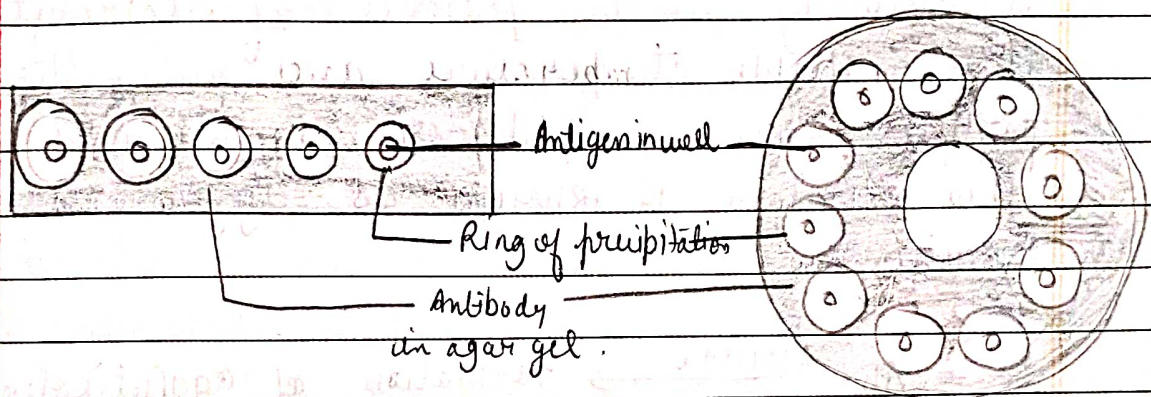 Antigen in well
Ring of precipitation
Antibody
in agar gel.